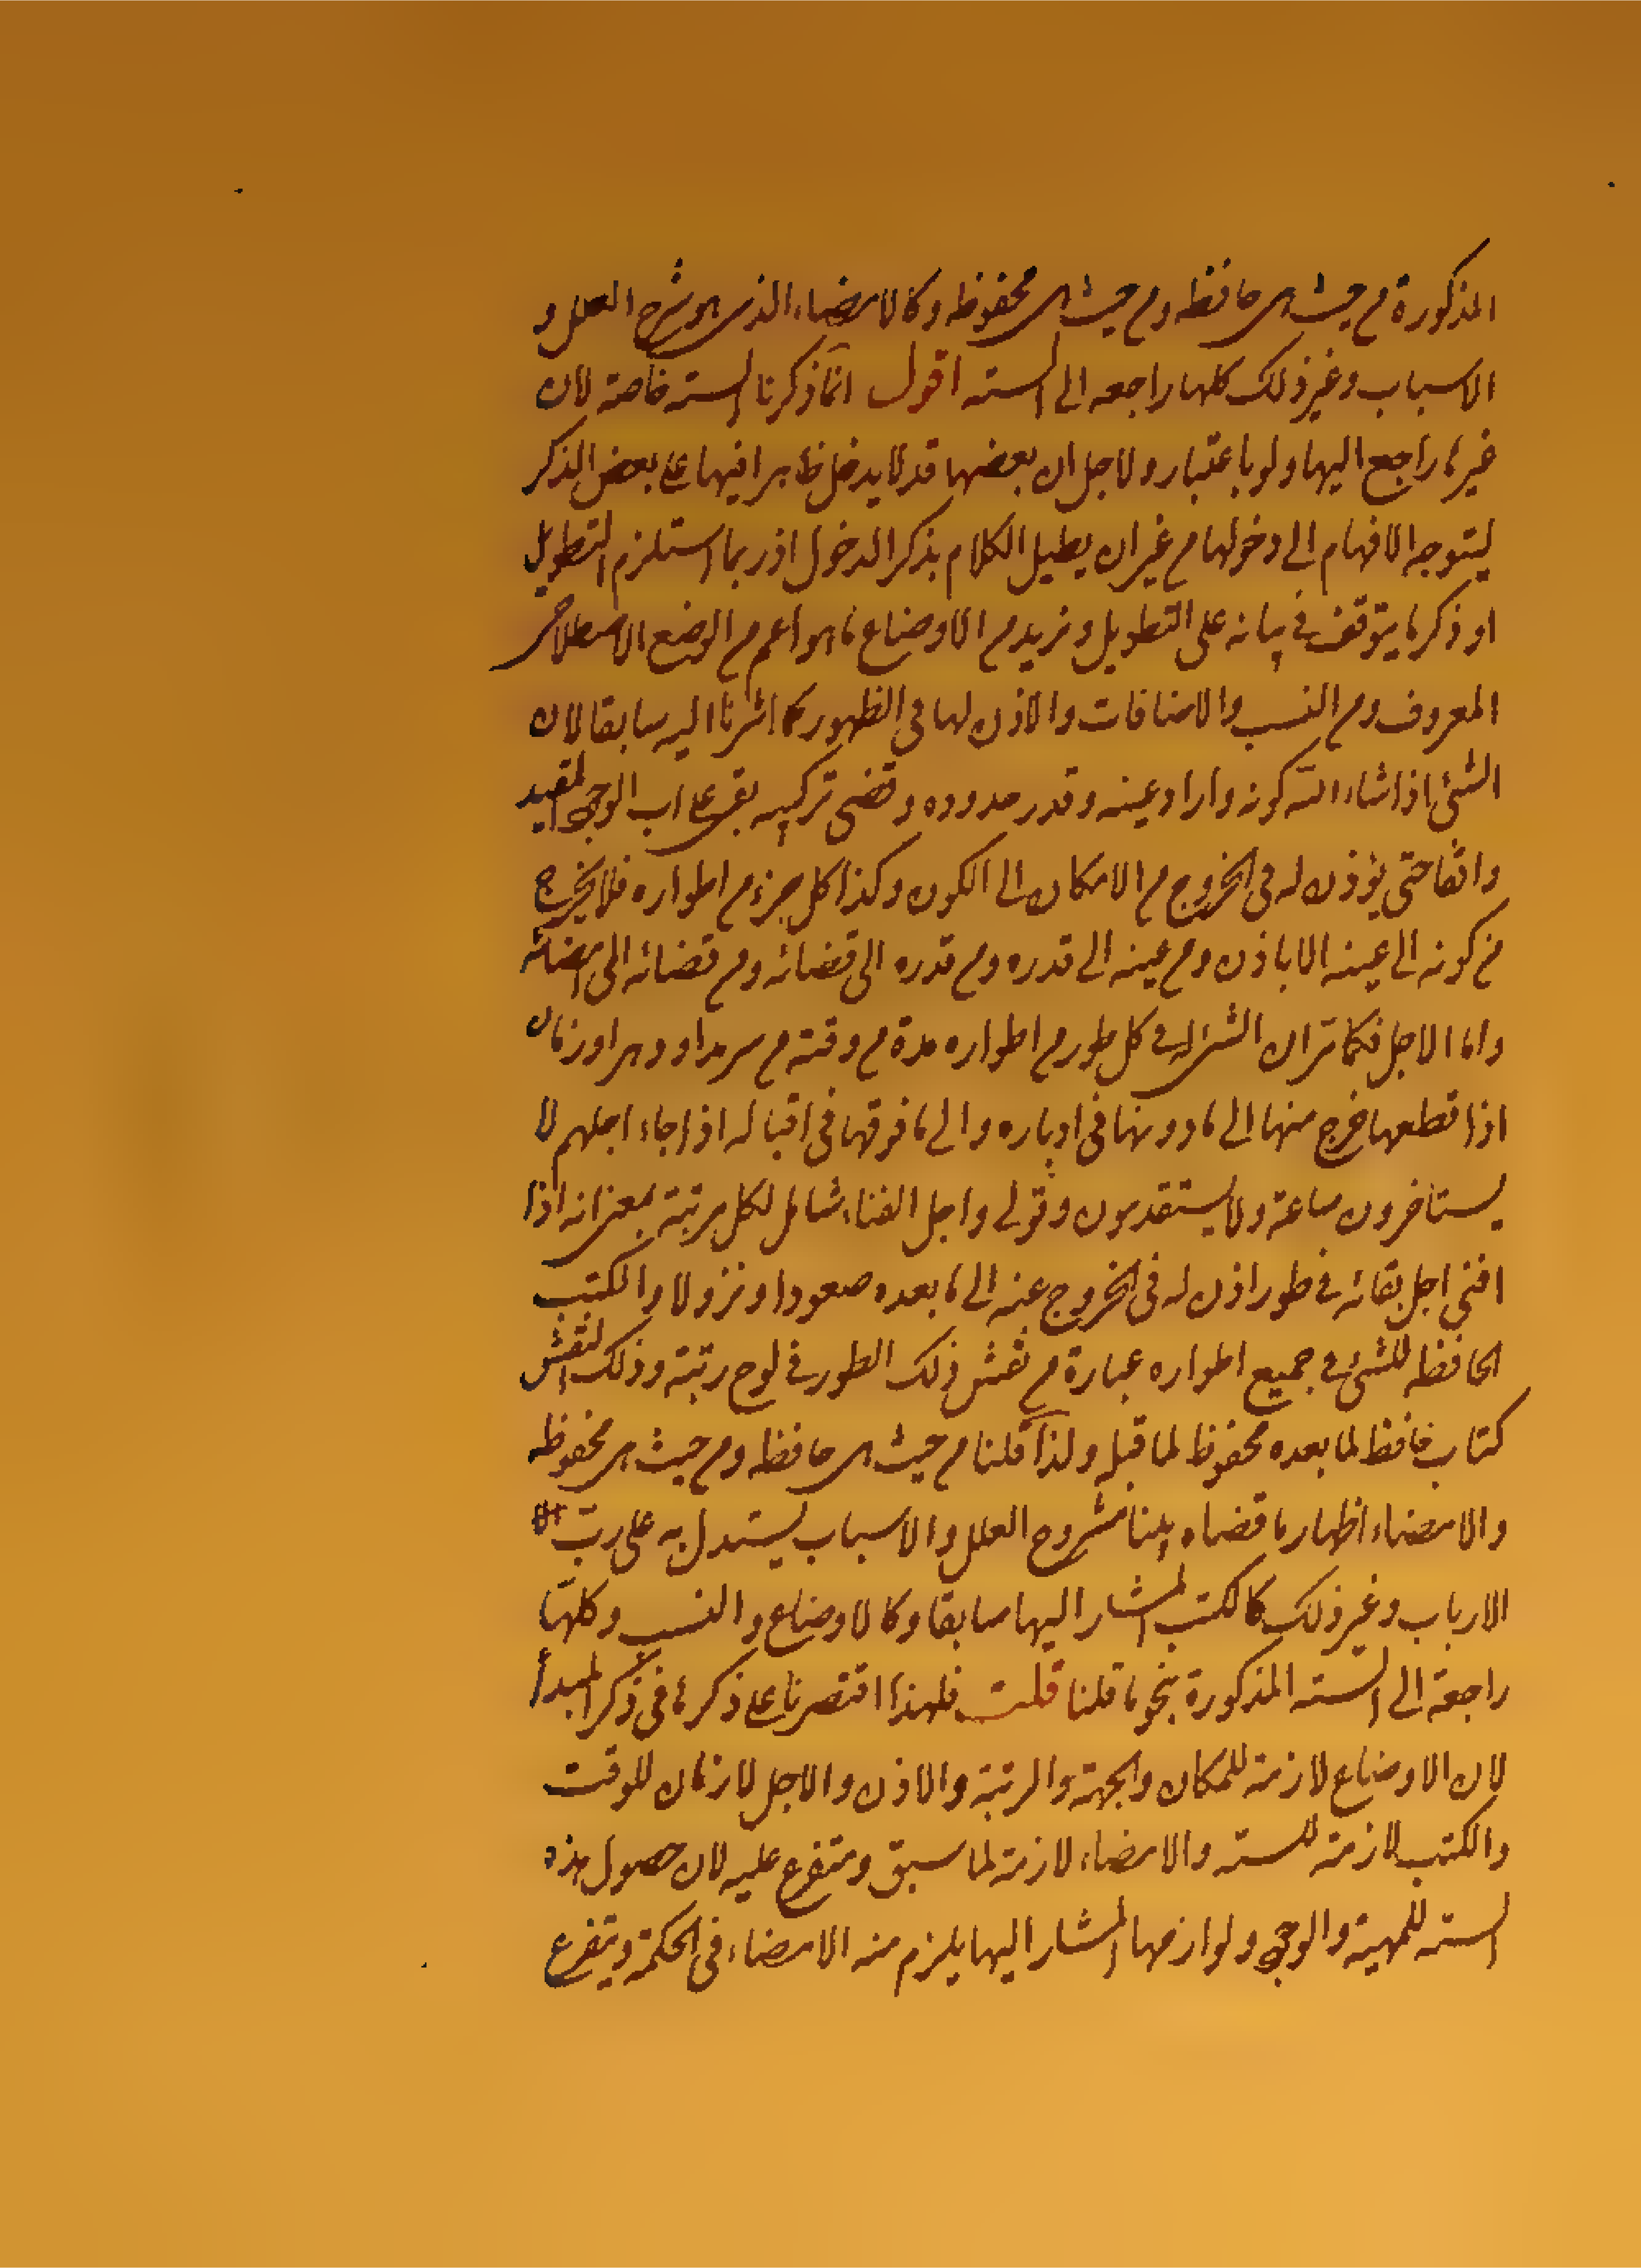 المذكورة من حيث هى حافظه ومن حيث هى محفوظه وكالامضاء الذى هو شرح العلل و
الاسباب وغير ذلك كلها راجعه الى السته اقول انما ذكرنا السته خاصة لان
غيرها راجع اليها ولو باعتبار ولاجل ان بعضها قد لا يدخل ظاهرا فيها على بعض الذكر
ليتوجه الافهام الى دخولها من غير ان يطيل الكلام بذكر الدخول اذ ربما استلزم التطويل
او ذكر ما يتوقف فى بيانه على التطويل ونريد من الاوضاع ما هو اعم من الوضع الاصطلاحى
المعروف ومن النسب والاضافات والاذن لها فى الظهور كما اشرنا اليه سابقا لان
الشئ اذا شاء الله كونه واراد عينه وقدر حدوده وقضى تركيبه بقى على باب الوجود المقيد
واقفا حتى يؤذن له فى الخروج من الامكان الى الكون وكذا كل جزء من اطواره فلا يخرج
من كونه الى عينه الا باذن ومن عينه الى قدره ومن قدره الى قضائه ومن قضائه الى امضائه
واما الاجل فكما تر ان الشئ له فى كل طور من اطواره مدة من وقته من سرمد او دهر او زمان
اذا قطعها خرج منها الى ما دونها فى ادباره والى ما فوقها فى اقباله اذا جاء اجلهم لا
يستاخرون ساعة ولا يستقدمون وقولى واجل الفناء شامل لكل مرتبة بمعنى انه اذا
افنى اجل بقائه فى طور اذن له فى الخروج عنه الى ما بعده صعودا ونزولا والكتب
الحافظه للشئ فى جميع اطواره عبارة من نقش ذلك الطور فى لوح رتبة وذلك النقش
كتاب حافظ لما بعده محفوظ لما قبله ولذا قلنا من حيث هى حافظه ومن حيث هى محفوظه
والامضاء اظهار ما قضاه مشروح العلل والاسباب ليستدل به على رب
الارباب وغير ذلك كالكتب المشار اليها سابقا وكالاوضاع والنسب وكلها
راجعة الى السته المذكورة بنحو ما قلنا قلت فلهذا اقتصرنا على ذكرها فى ذكر المبدأ
لان الاوضاع لازمة للمكان والجهة والرتبة والاذن والاجل لازمان للوقت
والكتب لازمة للسته والامضاء لازمة لما سبق ومتفرع عليه لان حصول هذه
السته للمهية والوجود ولوازمها المشار اليها يلزم منه الامضاء فى الحكمة ويتفرع